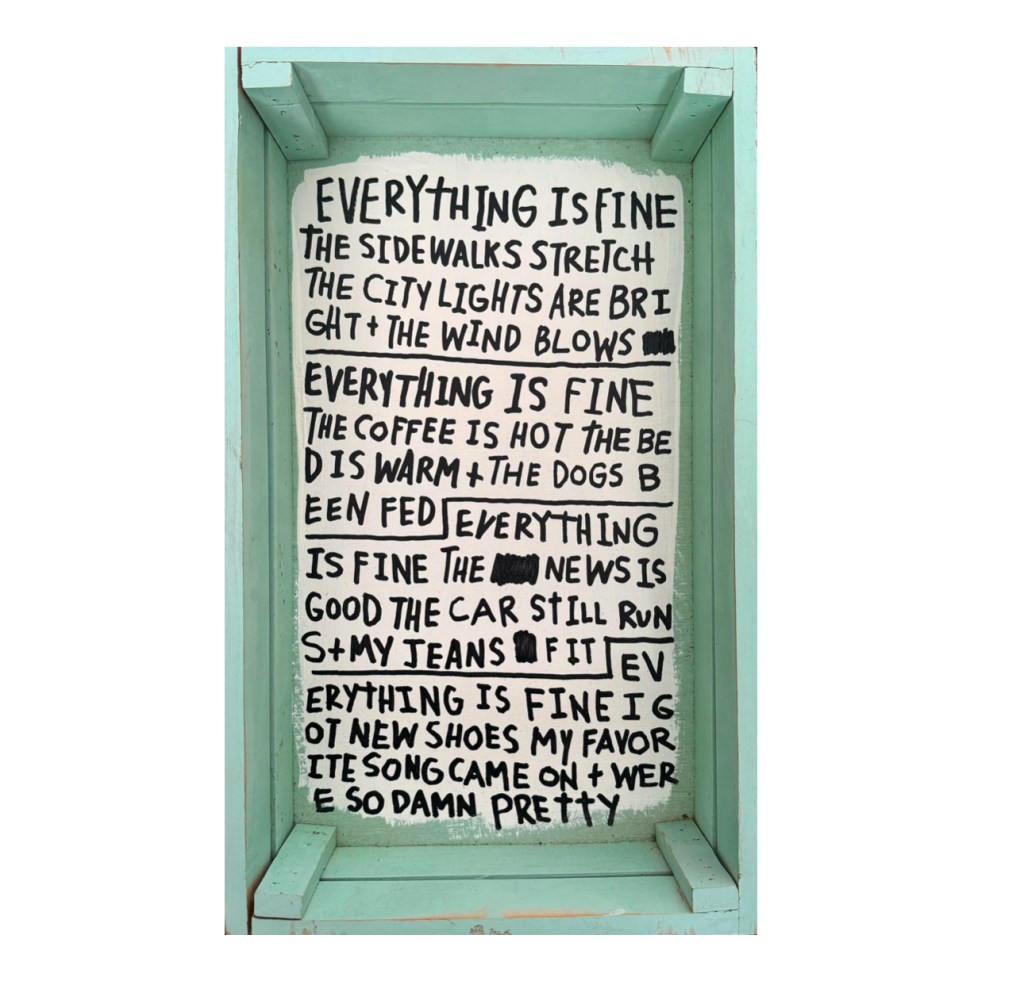 EVERYTHING IS FINE
THE SIDEWALKS STRETCH
THE CITY LIGHTS ARE BRI
GHT + THE WIND BLOWS
EVERYTHING IS FINE
THE COFFEE IS HOT THE BE
D IS WARM + THE DOGS B
EEN FED EVERYTHING
IS FINE THE NEWS IS
GOOD THE CAR STILL RUN
S + MY JEANS FIT EV
ERYTHING IS FINE I G
OT NEW SHOES MY FAVOR
ITE SONG CAME ON + WER
E SO DAMN PRETTY